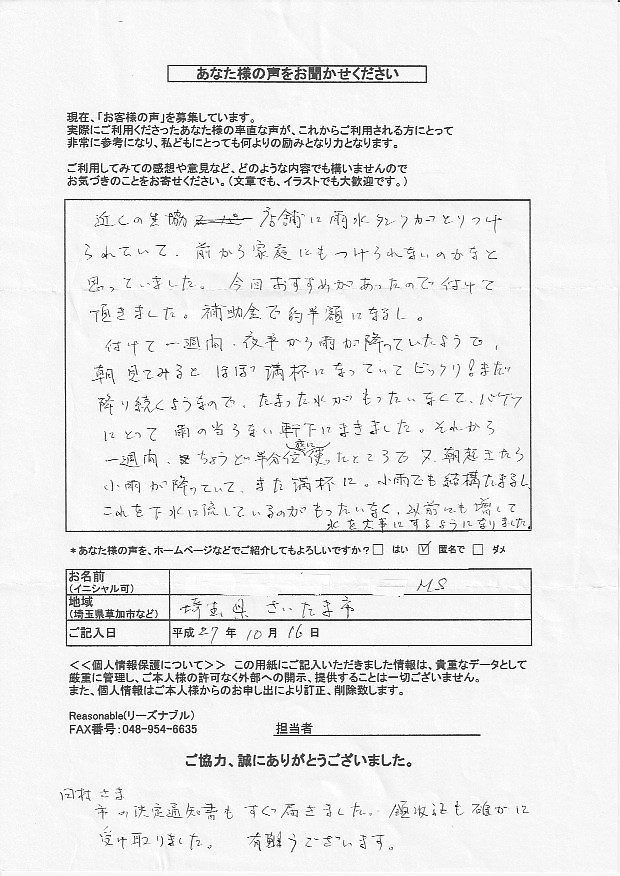 あなた様の声をお聞かせください
現在、「お客様の声」を募集しています。
実際にご利用くださったあなた様の率直な声が、これからご利用される方にとって
非常に参考になり、私どもにとっても何よりの励みとなり力となります。
ご利用してみての感想や意見など、どのような内容でも構いませんので
お気づきのことをお寄せください。（文章でも、イラストでも大歓迎です。）
近くの生協 店舗に雨水タンクがとりつけ
られていて、前から家庭にもつけられないのかなと
思っていました。今回おすすめがあったので付けて
頂きました。補助金で約半額になるし。
付けて一週間、夜半から雨が降っていたようで、
朝見てみるとほぼ満杯になっていてビックリ!まだ
降り続くようなので、たまった水がもったいなくて、バケツ
にとって雨の当らない軒下にまきました。それから
一週間、ちょうど半分位庭に使ったところで又、朝起きたら
小雨が降っていて、また満杯に。小雨でも結構たまるし、
これを下水に流しているのがもったいなく、以前にも増して
水を大事にするようになりました。
*あなた様の声を、ホームページなどでご紹介してもよろしいですか?□ はい ☑ 匿名で □ ダメ
お名前
(イニシャル可)
MS
地域
(埼玉県草加市など)
埼玉県さいたま市
ご記入日
平成27年10月16日
<<個人情報保護について>> この用紙にご記入いただきました情報は、貴重なデータとして
厳重に管理し、ご本人様の許可なく外部への開示、提供することは一切ございません。
また、個人情報はご本人様からのお申し出により訂正、削除致します。
Reasonable(リーズナブル)
FAX番号:048-954-6635
担当者
ご協力、誠にありがとうございました。
田村さま
市の決定通知書もすぐ届きました。領収証も確かに
受け取りました。 有難うございます。